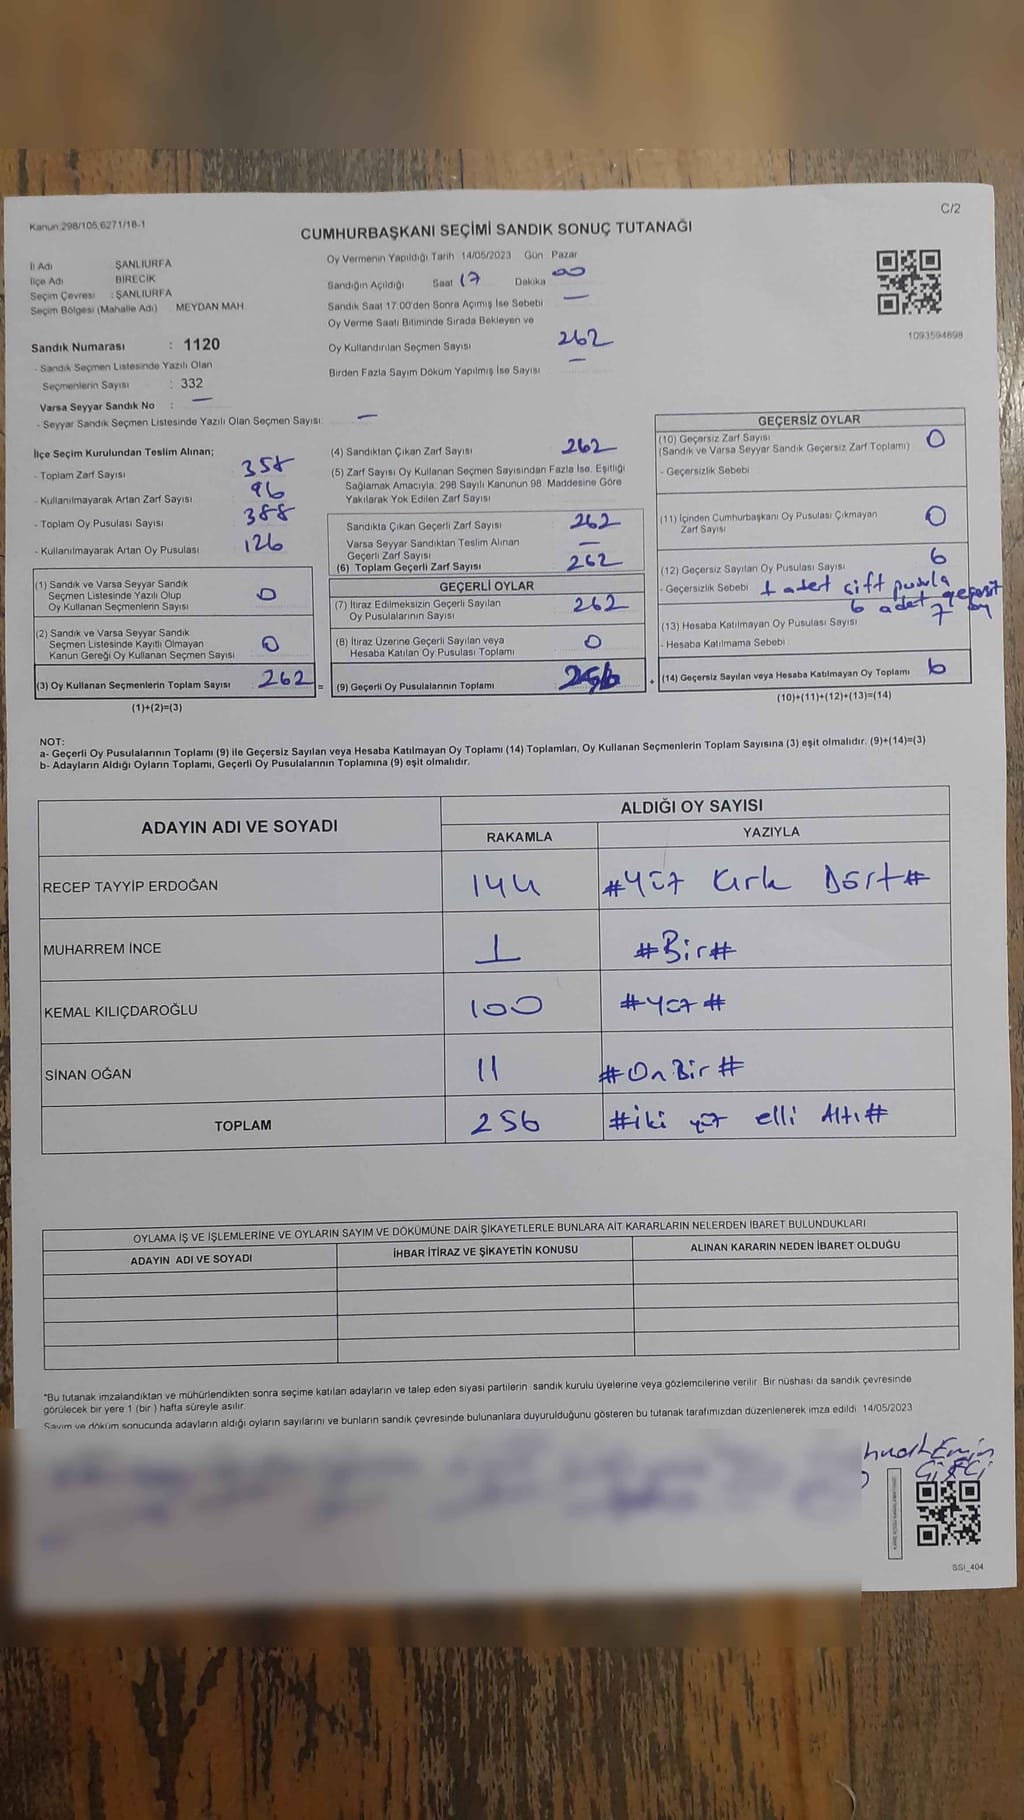 C/2
Kanun:298/105,6271/18-1
CUMHURBAŞKANI SEÇİMİ SANDIK SONUÇ TUTANAĞI
İl Adı ŞANLIURFA
İlçe Adı BİRECİK
Seçim Çevresi : ŞANLIURFA
Seçim Bölgesi (Mahalle Adı) MEYDAN MAH.
Sandık Numarası : 1120
- Sandık Seçmen Listesinde Yazılı Olan
Seçmenlerin Sayısı : 332
Varsa Seyyar Sandık No : —
- Seyyar Sandık Seçmen Listesinde Yazılı Olan Seçmen Sayısı: —
Oy Vermenin Yapıldığı Tarih 14/05/2023 Gün Pazar
Sandığın Açıldığı Saat 17 Dakika 00
Sandık Saat 17:00'den Sonra Açılmış İse Sebebi —
Oy Verme Saati Bitiminde Sırada Bekleyen ve
Oy Kullandırılan Seçmen Sayısı 262
Birden Fazla Sayım Döküm Yapılmış İse Sayısı —
1093594898
İlçe Seçim Kurulundan Teslim Alınan;
- Toplam Zarf Sayısı 358
- Kullanılmayarak Artan Zarf Sayısı 96
- Toplam Oy Pusulası Sayısı 388
- Kullanılmayarak Artan Oy Pusulası 126
(1) Sandık ve Varsa Seyyar Sandık
Seçmen Listesinde Yazılı Olup
Oy Kullanan Seçmenlerin Sayısı 0
(2) Sandık ve Varsa Seyyar Sandık
Seçmen Listesinde Kayıtlı Olmayan
Kanun Gereği Oy Kullanan Seçmen Sayısı 0
(3) Oy Kullanan Seçmenlerin Toplam Sayısı 262 =
(1)+(2)=(3)
(4) Sandıktan Çıkan Zarf Sayısı 262
(5) Zarf Sayısı Oy Kullanan Seçmen Sayısından Fazla İse, Eşitliği
Sağlamak Amacıyla, 298 Sayılı Kanunun 98. Maddesine Göre
Yakılarak Yok Edilen Zarf Sayısı
Sandıkta Çıkan Geçerli Zarf Sayısı 262
Varsa Seyyar Sandıktan Teslim Alınan
Geçerli Zarf Sayısı —
(6) Toplam Geçerli Zarf Sayısı 262
GEÇERLİ OYLAR
(7) İtiraz Edilmeksizin Geçerli Sayılan
Oy Pusulalarının Sayısı 262
(8) İtiraz Üzerine Geçerli Sayılan veya
Hesaba Katılan Oy Pusulası Toplamı 0
(9) Geçerli Oy Pusulalarının Toplamı 256 +
GEÇERSİZ OYLAR
(10) Geçersiz Zarf Sayısı
(Sandık ve Varsa Seyyar Sandık Geçersiz Zarf Toplamı) 0
- Geçersizlik Sebebi
(11) İçinden Cumhurbaşkanı Oy Pusulası Çıkmayan
Zarf Sayısı 0
(12) Geçersiz Sayılan Oy Pusulası Sayısı 6
- Geçersizlik Sebebi 1 adet çift pusula
6 adet geçersiz oy
(13) Hesaba Katılmayan Oy Pusulası Sayısı 7
- Hesaba Katılmama Sebebi
(14) Geçersiz Sayılan veya Hesaba Katılmayan Oy Toplamı 6
(10)+(11)+(12)+(13)=(14)
NOT:
a- Geçerli Oy Pusulalarının Toplamı (9) ile Geçersiz Sayılan veya Hesaba Katılmayan Oy Toplamı (14) Toplamları, Oy Kullanan Seçmenlerin Toplam Sayısına (3) eşit olmalıdır. (9)+(14)=(3)
b- Adayların Aldığı Oyların Toplamı, Geçerli Oy Pusulalarının Toplamına (9) eşit olmalıdır.
ADAYIN ADI VE SOYADI
ALDIĞI OY SAYISI
RAKAMLA YAZIYLA
RECEP TAYYİP ERDOĞAN 144 #Yüz Kırk Dört#
MUHARREM İNCE 1 #Bir#
KEMAL KILIÇDAROĞLU 100 #Yüz#
SİNAN OĞAN 11 #OnBir#
TOPLAM 256 #iki yüz elli Altı#
OYLAMA İŞ VE İŞLEMLERİNE VE OYLARIN SAYIM VE DÖKÜMÜNE DAİR ŞİKAYETLERLE BUNLARA AİT KARARLARIN NELERDEN İBARET BULUNDUKLARI
ADAYIN ADI VE SOYADI İHBAR İTİRAZ VE ŞİKAYETİN KONUSU ALINAN KARARIN NEDEN İBARET OLDUĞU
*Bu tutanak imzalandıktan ve mühürlendikten sonra seçime katılan adayların ve talep eden siyasi partilerin sandık kurulu üyelerine veya gözlemcilerine verilir. Bir nüshası da sandık çevresinde
görülecek bir yere 1 (bir) hafta süreyle asılır.
Sayım ve döküm sonucunda adayların aldığı oyların sayılarını ve bunların sandık çevresinde bulunanlara duyurulduğunu gösteren bu tutanak tarafımızdan düzenlenerek imza edildi. 14/05/2023
Emin
Çiftçi
SSI_404